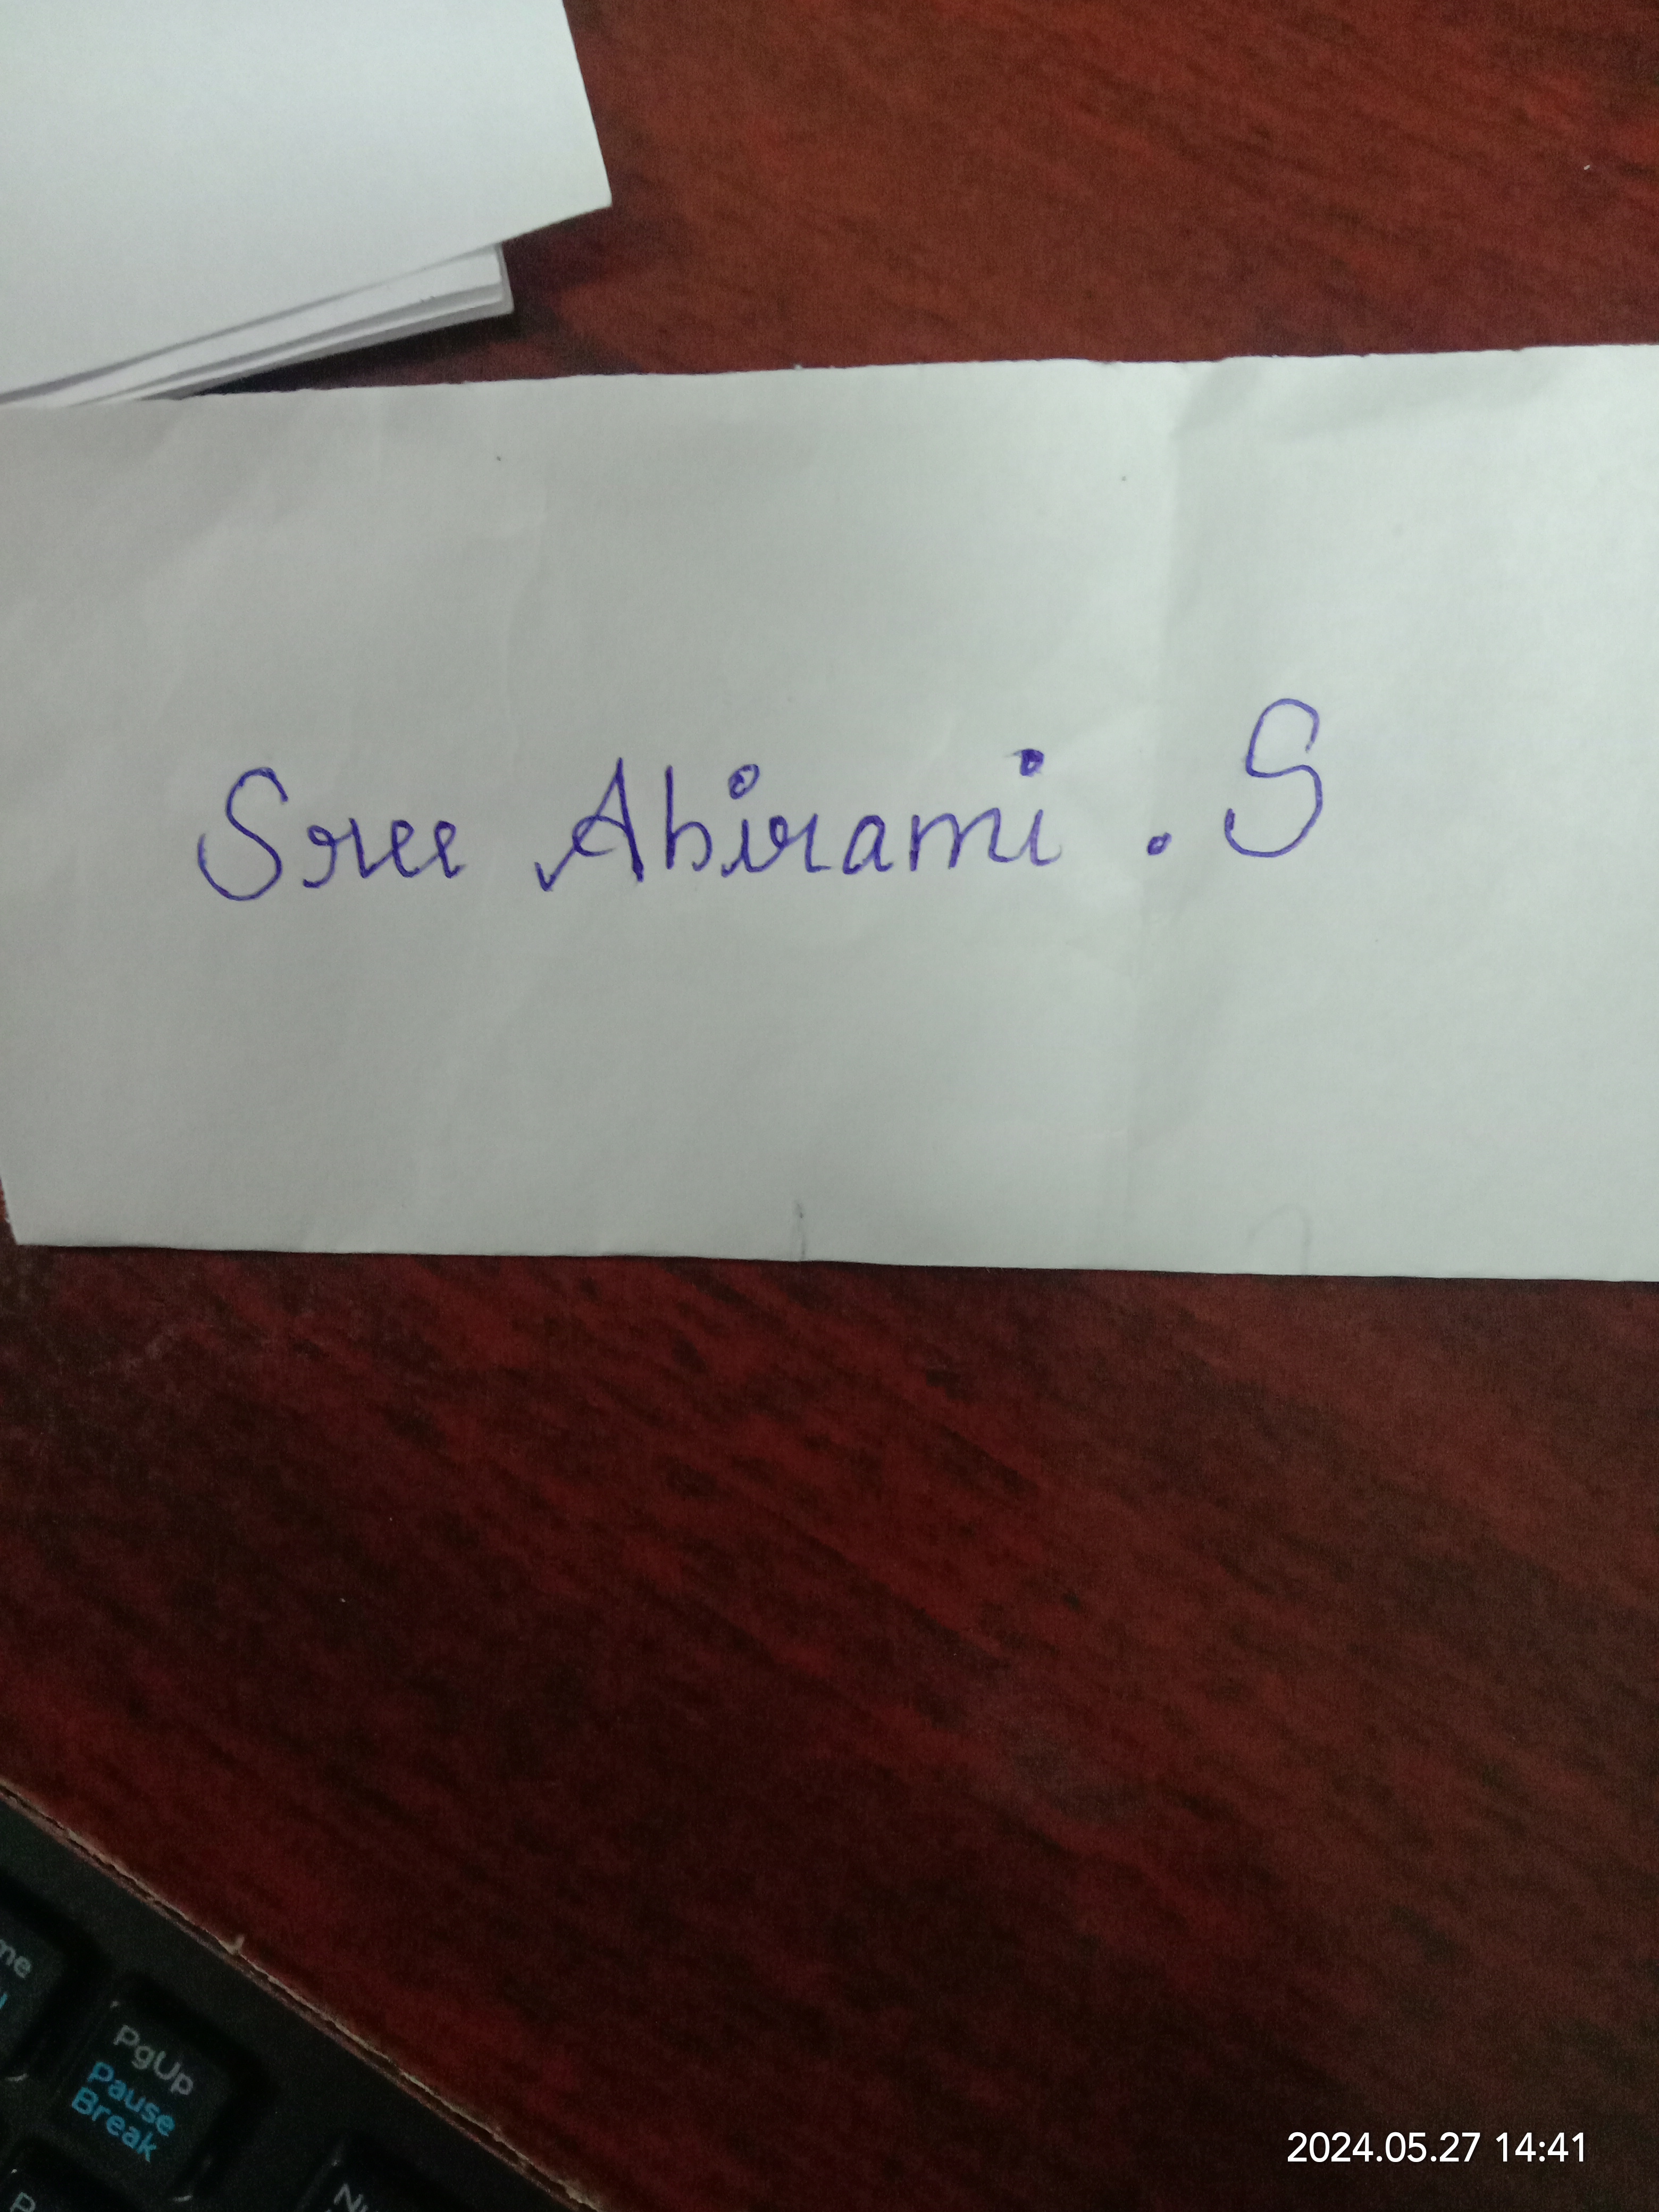 Sree Abirami . S
PgUp
Pause
Break
2024.05.27 14:41